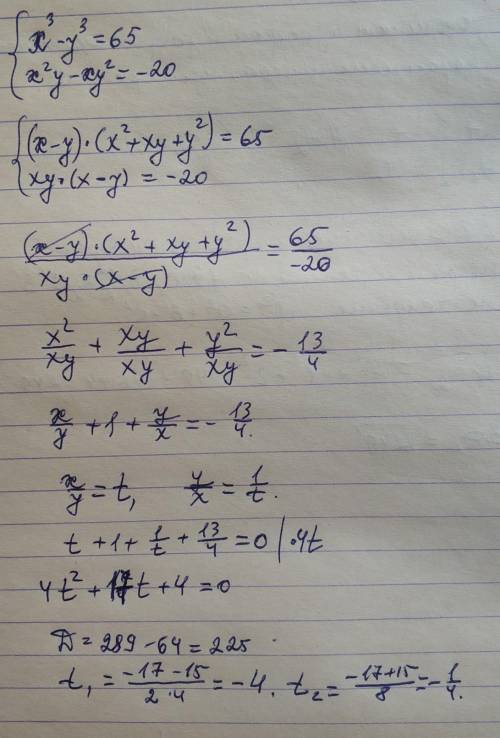 { x³ - y³ = 65
x²y - xy² = -20
{ (x-y)·(x² + xy + y²) = 65
xy·(x-y) = -20
(x-y)·(x² + xy + y²) / xy·(x-y) = 65 / -20
x²/xy + xy/xy + y²/xy = - 13/4
x/y + 1 + y/x = - 13/4.
x/y = t, y/x = 1/t.
t + 1 + 1/t + 13/4 = 0 | ·4t
4t² + 17t + 4 = 0
D = 289 - 64 = 225
t₁ = -17 - 15 / 2·4 = -4. t₂ = -17+15 / 8 = - 1/4.